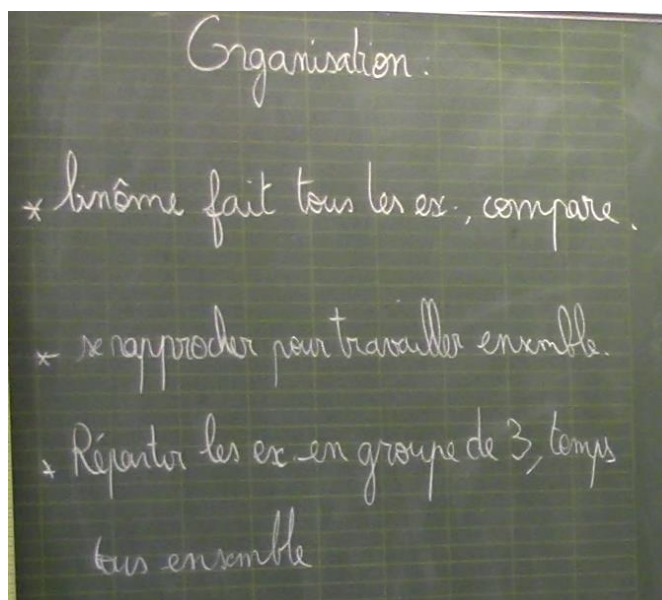 Organisation :
* binôme fait tous les ex., compare.
* se rapprocher pour travailler ensemble.
* Répartir les ex. en groupe de 3, temps
tous ensemble